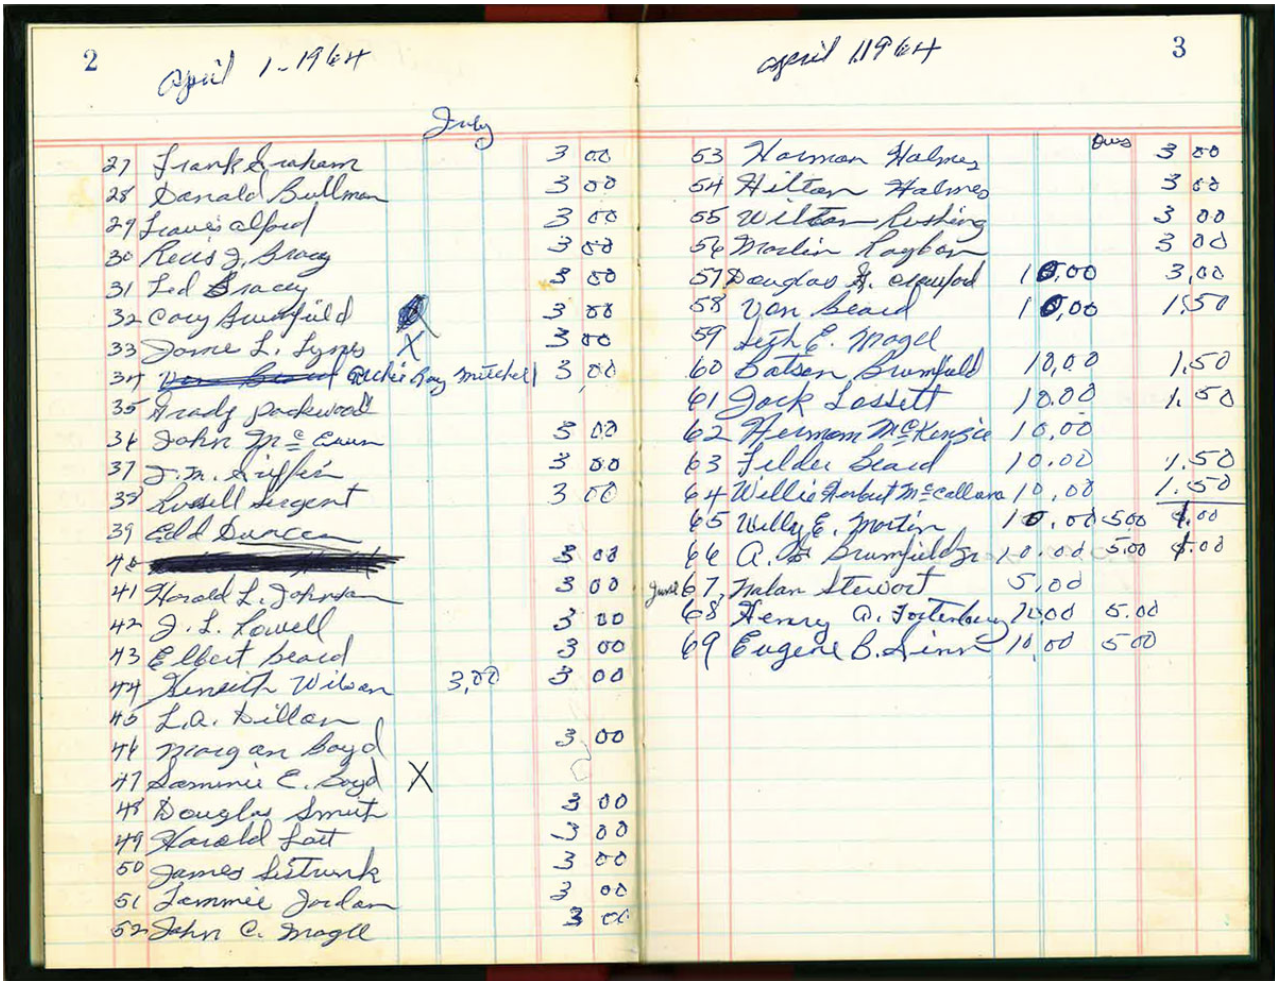 2
April 1-1964
July
27 Frank Graham 3 00
28 Donald Bullman 3 00
29 Travis Alford 3 00
30 J. Bracy 3 00
31 Ted Bracey 3 00
32 Cary Brumfield 3 00
33 L. X 3 00
34 Archie Ray Mitchell 3 00
35 Grady Packwood
36 John McEwen 3 00
37 J.M. Griffin 3 00
38 Russell Sergent 3 00
39 Edd Duncan
40 3 00
41 Harold L. Johnson 3 00
42 J. L. Rowell 3 00
43 Elbert Beard 3 00
44 Kenneth Wilson 3,00 3 00
45 L.A. Dillon
46 Morgan Boyd 3 00
47 Sammie E. Boyd X
48 Douglas Smith 3 00
49 Harold 3 00
50 James Sistrunk 3 00
51 Tammie Jordan 3 00
52 John C. Magee 3 00
3
April 1, 1964
Dues
53 Harman Holmes 3 00
54 Hilton Holmes 3 00
55 Wilton Rushing 3 00
56 Marlin Raybon 3 00
57 Douglas Crawford 10.00 3,00
58 Van Beard 10,00 1,50
59 Seth E. Magee
60 Batson Brumfield 10,00 1,50
61 Jack Lossett 10.00 1.50
62 Herman McKenzie 10.00
63 Felder Beard 10.00 1.50
64 Willis Herbert 10,00 1.50
65 Willy E. Martin 10.00 5.00 .00
66 A. Brumfield Jr 10.00 5.00 .00
June 67, Nolan Stewart 5,00
68 Henry A. Fortenberry 10.00 5.00
69 Eugene B. 10,00 5 00